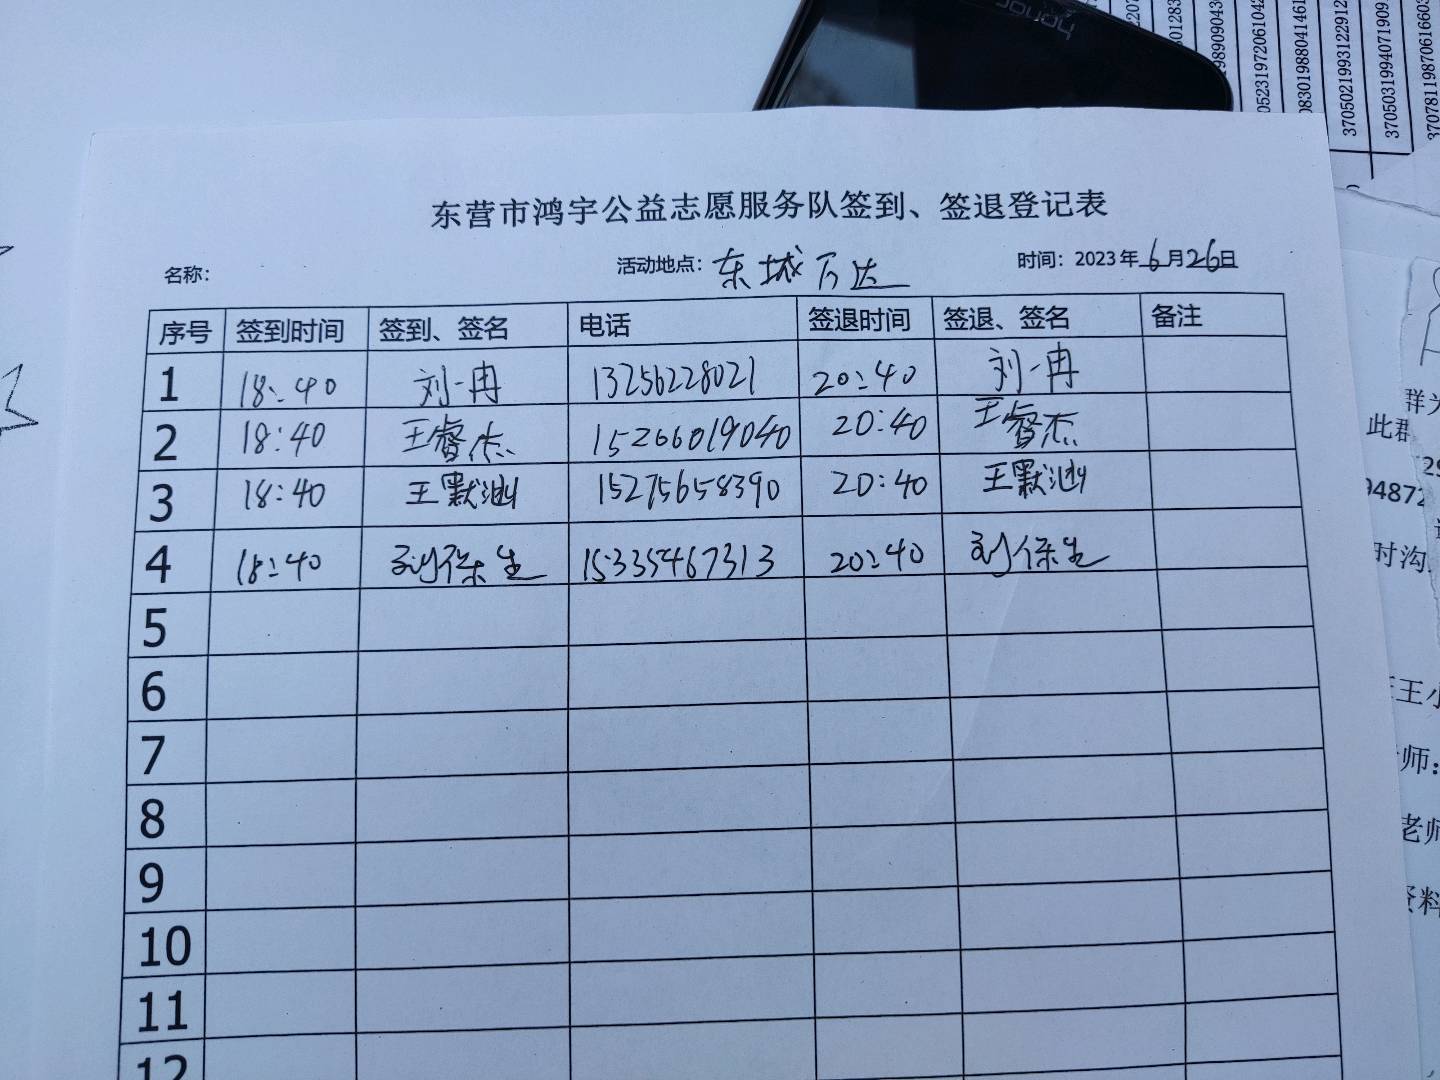 honor
370502199312 2912
37050319940719 09
37078119870616603
东营市鸿宇公益志愿服务队签到、签退登记表
名称： 活动地点：东城万达 时间：2023年6月26日
序号 签到时间 签到、签名 电话 签退时间 签退、签名 备注
1 18:40 刘一冉 13256228021 20:40 刘一冉
2 18:40 王睿杰 15266019040 20:40 王睿杰
3 18:40 王默涵 15275658390 20:40 王默涵
4 18:40 刘保生 15335467313 20:40 刘保生
5
6
7
8
9
10
11
12
群为
此群
94872
时沟
王小
师：
老师
资料